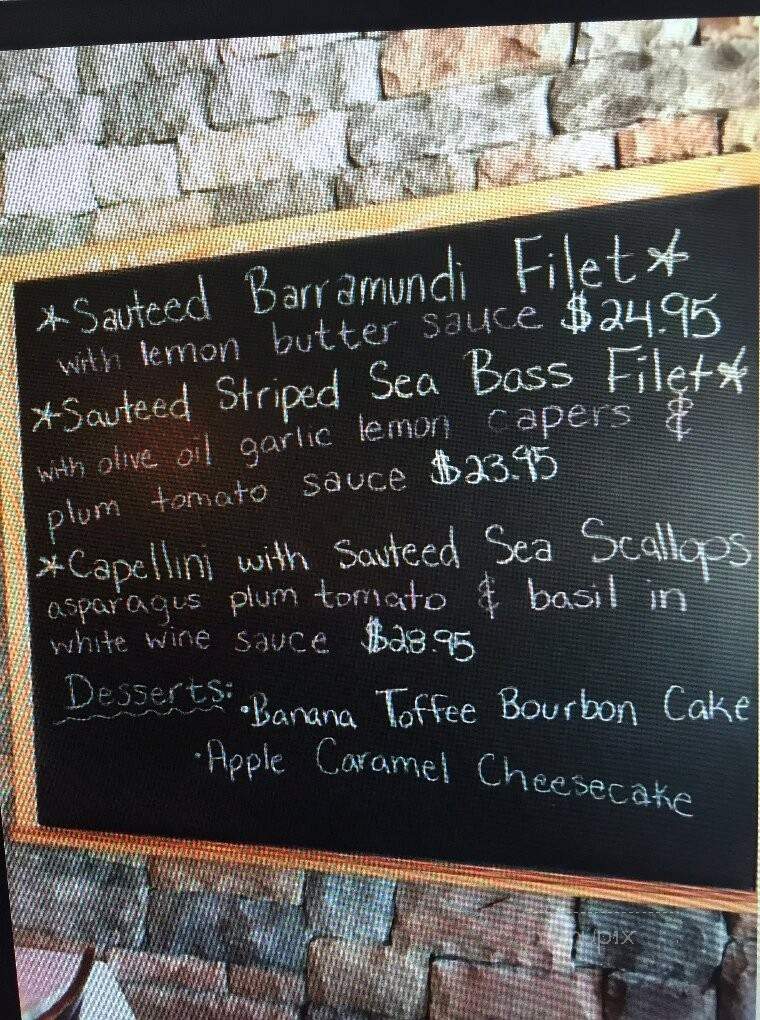 *Sauteed Barramundi Filet*
with lemon butter sauce $24.95
*Sauteed Striped Sea Bass Filet*
with olive oil garlic lemon capers &
plum tomato sauce $23.95
*Capellini with Sauteed Sea Scallops
asparagus plum tomato & basil in
white wine sauce $28.95
Desserts: •Banana Toffee Bourbon Cake
•Apple Caramel Cheesecake